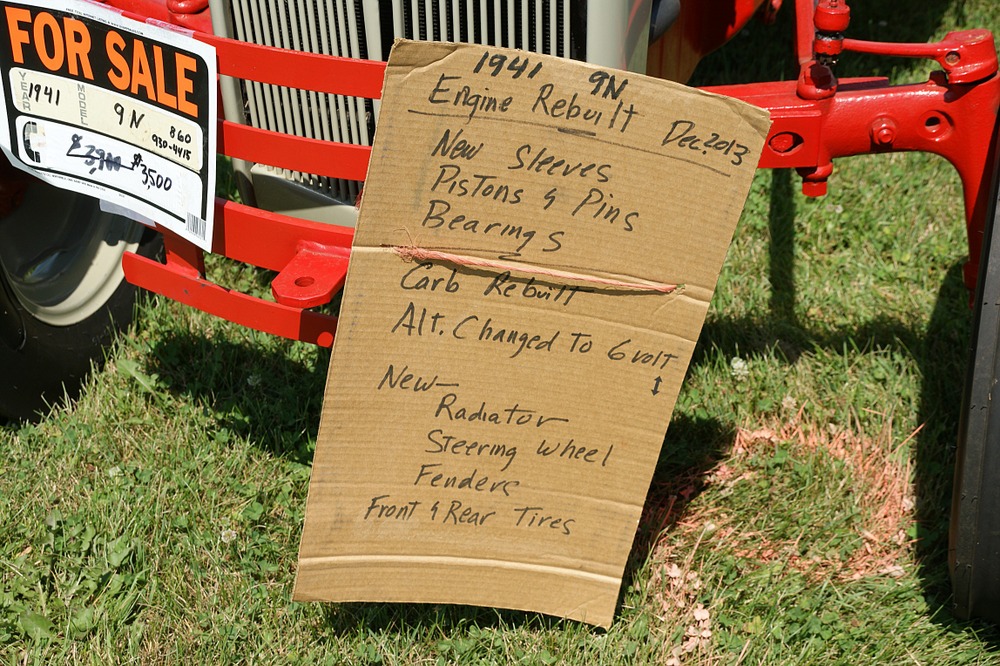 FOR SALE
YEAR 1941 MODEL 9N
860
930-4415
$3,500
1941 9N
Engine Rebuilt Dec. 2013
New Sleeves
Pistons & Pins
Bearings
Carb Rebuilt
Alt. Changed To 6 volt
New—
Radiator
Steering Wheel
Fenders
Front & Rear Tires